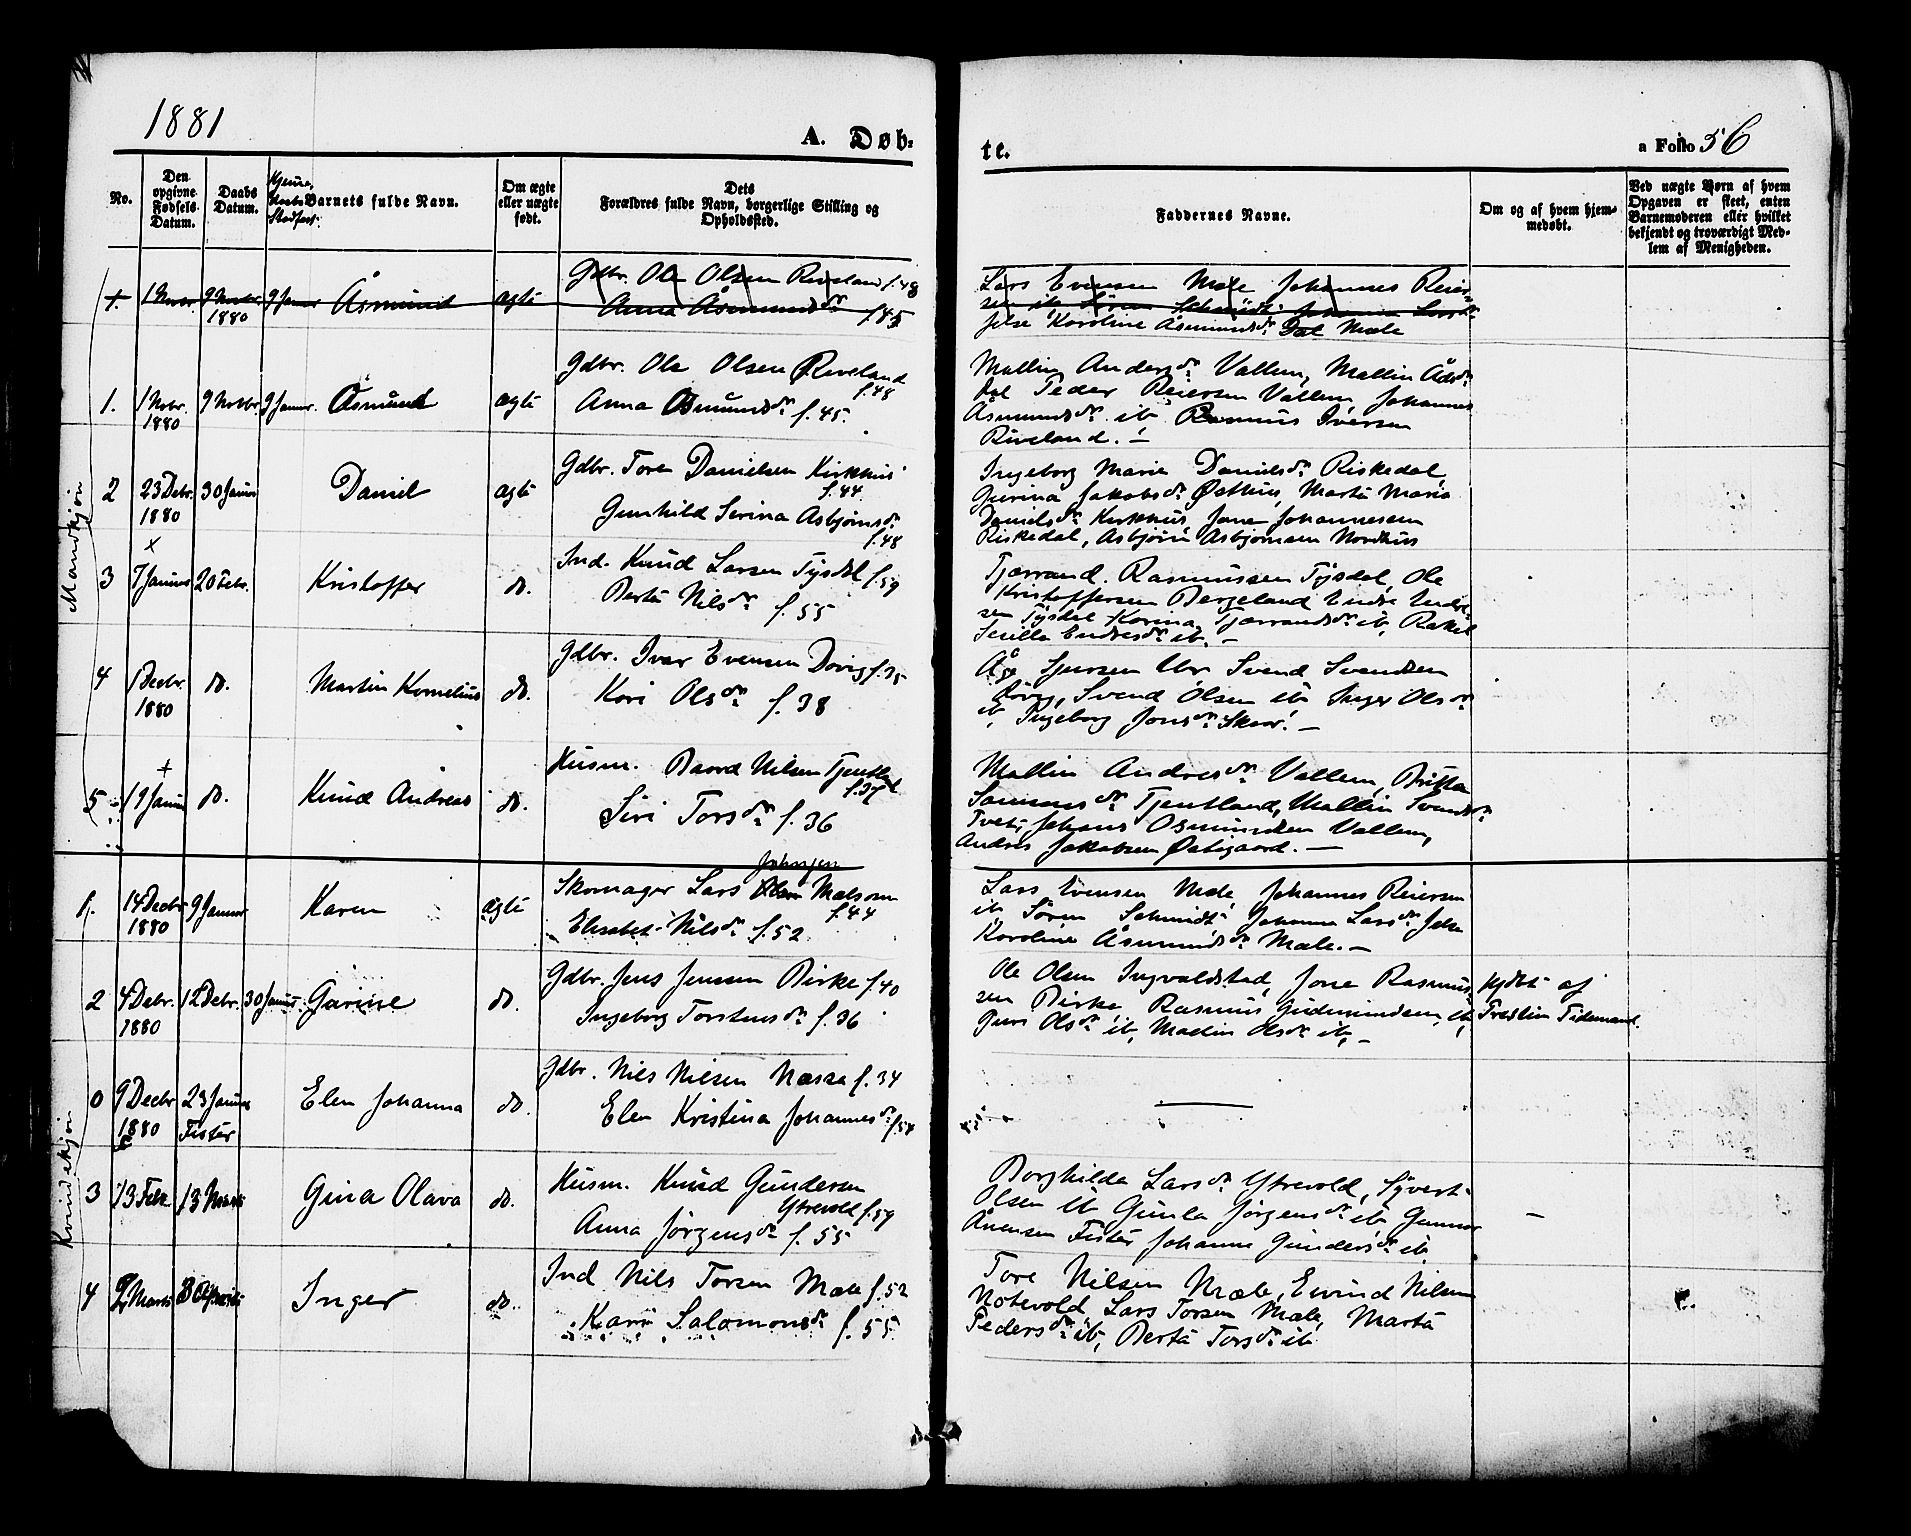 1881
A. Døb-
te.
a Folio 56
No.
Den opgivne Fødsels Datum.
Daabs Datum.
Barnets fulde Navn.
Om ægte eller uægte født.
Dets Forældres fulde Navn, borgerlige Stilling og Opholdssted.
Faddernes Navne.
Om og af hvem hjemmedøbt.
Ved uægte Børn af hvem Opgaven er skeet, enten Barnemoderen eller hvilket bekjendt og troværdigt Medlem af Menigheden.
Mandkjøn
1 Novbr 9 Novbr. 1880 9 Januar Åsmund ægte
Gdbr. Ole Olsen Riveland f. 48
Anna Åsmundsdr f. 45
Lars Evensen Mæle Johannes Reier-
sen ib Søren Schmidt Johanne Larsdr
Jelse Karoline Åsmundsdr Mæle
1. 1 Nvbr. 1880 9 Novbr 9 Januar. Åsmund ægte
Gdbr. Ole Olsen Riveland
f. 48
Anna Osmundsdr f. 45.
Mallin Andersdr Vallem, Mallin
Dal Peder Reiersen Vallem Johannes
Åsmundsdr ib Rasmus Iversen
Riveland. –
2 23 Debr. 1880 30 Januar Daniel ægte
Gdbr. Tore Danielsen Kirkhus
f. 44.
Gunhild Serina Asbjørnsdr
f. 48
Ingeborg Marie Danielsdr Riskedal,
Gurina Jakobsdr Østhus, Marta Maria
Danielsdr Kirkhus, Jone Johannessen
Riskedal, Asbjørn Asbjørnsen Nordhus
3 7 Januar 20 Febr. Kristoffer do.
Ind. Knud Larsen Tysdal f. 59
Berta Nilsdr f. 55
Tjærrand. Rasmussen Tysdal, Ole
Kristoffersen Bergeland Endre Endre-
sen Tysdal Korina Tjerrandsdr ib, Rakel
Serilla Endresdr ib. –
4 1 Decbr. 1880 do. Martin Kornelius do.
Gdbr. Ivar Evensen Døvig f. 35
Kari Olsdr f. 38
Åge Sjursen Ur Svend Svendsen
Døvig, Svend Olsen ib Inger Olsdr
ib, Ingeborg Jonsdr Skor. –
5 19 Januar do. Knud Andreas do.
Husm. Baard Nilsen Tjentland
f. 37
Siri Torsdr f. 36
Mallin Andresdr Vallem, Britta
Samunsdr Tjentland, Mallin Svendsdr
Tveit, Johans Osmundsen Vallem,
Andres Jakobsen Østigaard. –
Kvindekjøn
1. 14 Decbr 1880 9 Januar Karen ægte
Johnsen
Skomager Lars Olsen Mælsom
f. 44
Elisabet Nilsdr f. 52
Lars Evensen Mæle, Johannes Reiersen
ib, Søren Schmidt Johanne Larsdr Jelse
Karoline Åsmundsdr Mæle. –
2 4 Debr. 1880 12 Debr. 30 Januar Gurine do.
Gdbr. Jens Jensen Birke f. 40
Ingeborg Torstensdr f. 36
Ole Olsen Ingvaldstad, Jone Rasmus-
sen Birke Rasmus Gudmundsen, ib
Guri Olsdr ib, Mallin Olsdr ib, –
Hjdbt af
Frøken Tidemand.
0 9 Decbr 1880 23 Januar Fister Elen Johanna do.
Gdbr. Nils Nilsen Nessa f. 34
Elen Kristina Johannesdr f. 54
3 13 Febr 13 Marts Gina Olava do.
Husm. Knud Gundersen
Ytrevold f. 59
Anna Jørgensdr f. 55
Borghilda Larsdr Ytrevold, Syvert
Olsen ib Gunla Jørgensdr ib Gunnar
Ånensen Fister Johanne Gundersdr ib
4 2 Marts Inger do.
Ind Nils Torsen Mæle f. 52
Kari Salomonsdr f. 55
Tore Nilsen Mæle, Eivind Nilsen
Notevold Lars Torsen Mæle, Marta
Pedersdr ib, Berta Torsdr ib